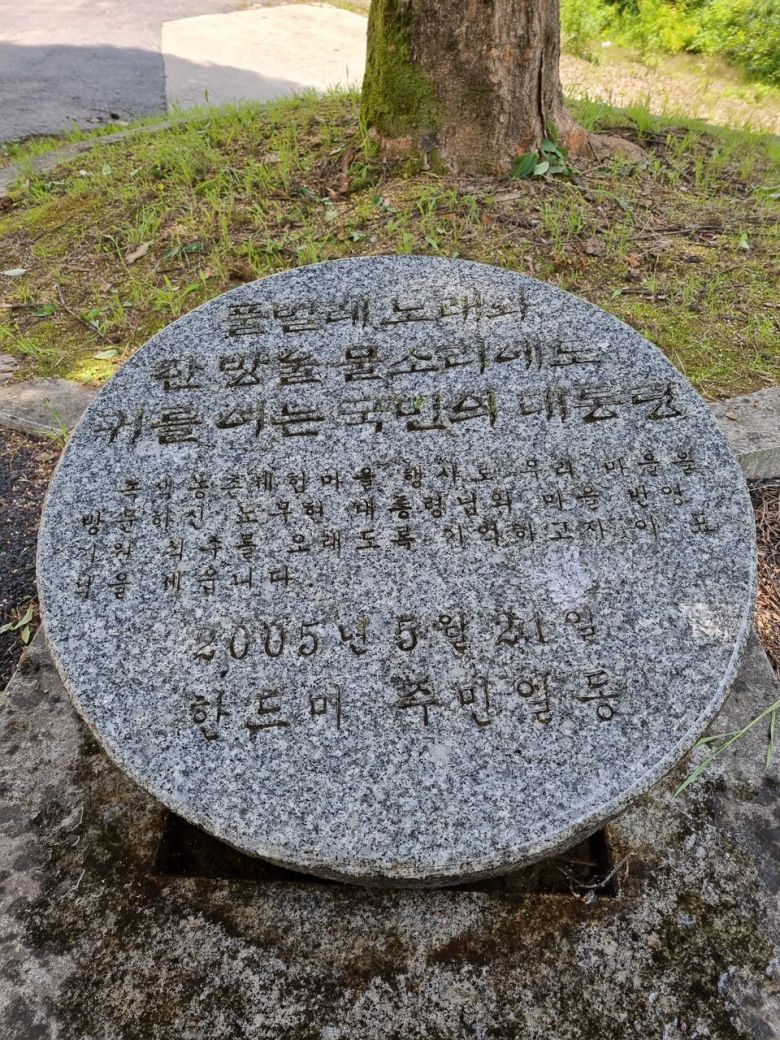 풀벌레 노래와
한 방울 물소리에도
귀를 여는 국민의 대통령
녹색농촌체험마을 행사로 우리 마을을
방문하신 노무현 대통령님의 마을 방명
식수를 오래도록 기억하고자 이 표
을 세웁니다.
2005년 5월 21일
한드미 주민일동